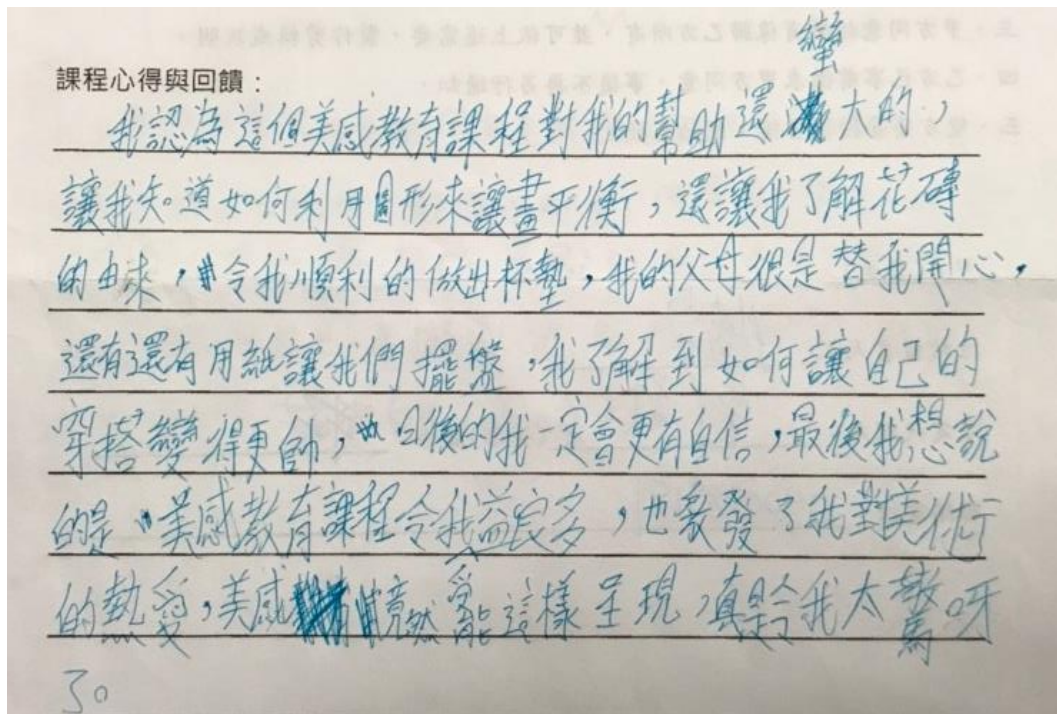 課程心得與回饋：
我認為這個美感教育課程對我的幫助還蠻大的，
讓我知道如何利用圖形來讓畫平衡，還讓我了解花磚
的由來，令我順利的做出杯墊，我的父母很是替我開心，
還有還有用紙讓我們擺盤，我了解到如何讓自己的
穿搭變得更帥，日後的我一定會更有自信，最後我想說
的是，美感教育課程令我益良多，也啟發了我對美術
的熱愛，美感竟然能這樣呈現，真是令我太驚呀
了。